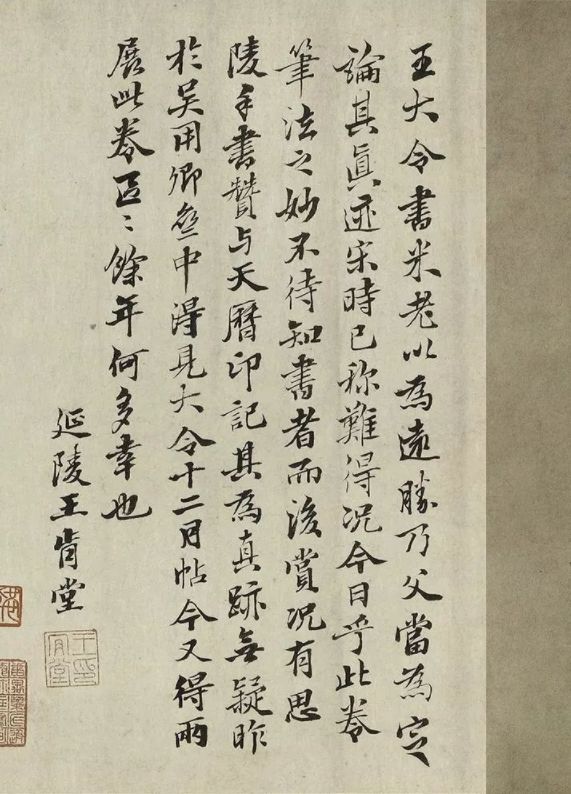 王大令書米老以為遠勝乃父當為定
論其真迹宋時已称難得况今日乎此卷
筆法之妙不待知書者而後賞况有思
陵手書贊与天曆印記其為真跡無疑昨
於吴用卿處中得見大令十二月帖今又得兩
展此卷區〻餘年何多幸也
延陵王肯堂
王肯堂印